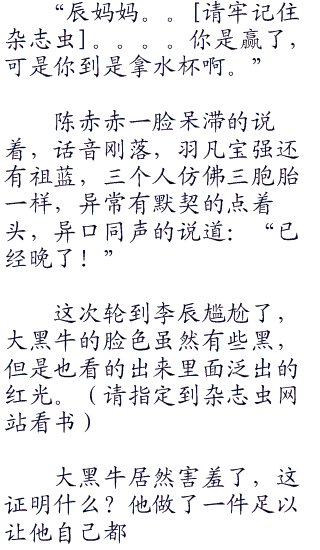 “辰妈妈。。[请牢记住
杂志虫]。。。。你是赢了，
可是你到是拿水杯啊。”
陈赤赤一脸呆滞的说
着，话音刚落，羽凡宝强还
有祖蓝，三个人仿佛三胞胎
一样，异常有默契的点着
头，异口同声的说道：“已
经晚了！”
这次轮到李辰尴尬了，
大黑牛的脸色虽然有些黑，
但是也看的出来里面泛出的
红光。（请指定到杂志虫网
站看书）
大黑牛居然害羞了，这
证明什么？他做了一件足以
让他自己都